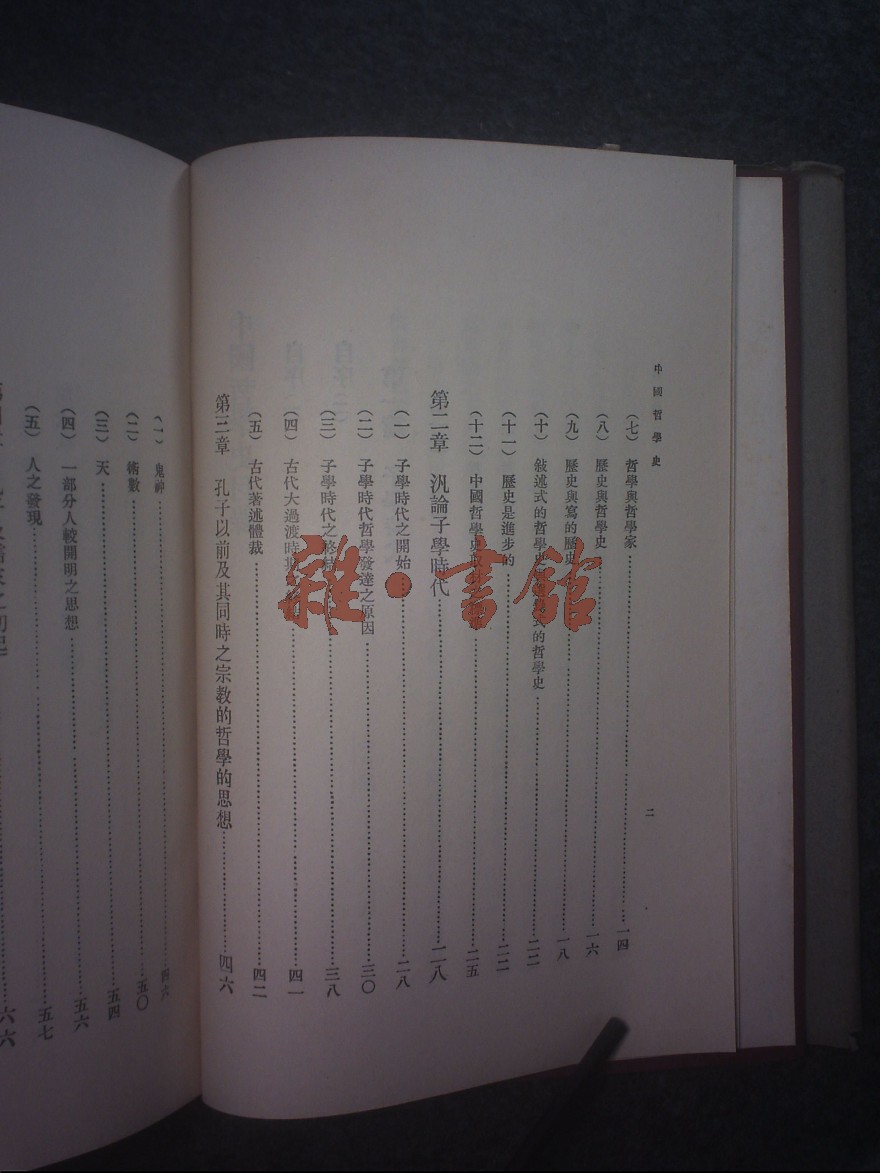 中國哲學史
二
(七) 哲學與哲學家……一四
(八) 歷史與哲學史……一六
(九) 歷史與寫的歷史……一八
(十) 敍述式的哲學史 式的哲學史……二二
(十一) 歷史是進步的……二二
(十二) 中國哲學史……二五
第二章 汎論子學時代……二八
(一) 子學時代之開始……二八
(二) 子學時代哲學發達之原因……三〇
(三) 子學時代之終結……三八
(四) 古代大過渡時期……四一
(五) 古代著述體裁……四二
第三章 孔子以前及其同時之宗教的哲學的思想……四六
(一) 鬼神……四六
(二) 術數……五〇
(三) 天……五四
(四) 一部分人較開明之思想……五六
(五) 人之發現……五七
六六
雜·書館